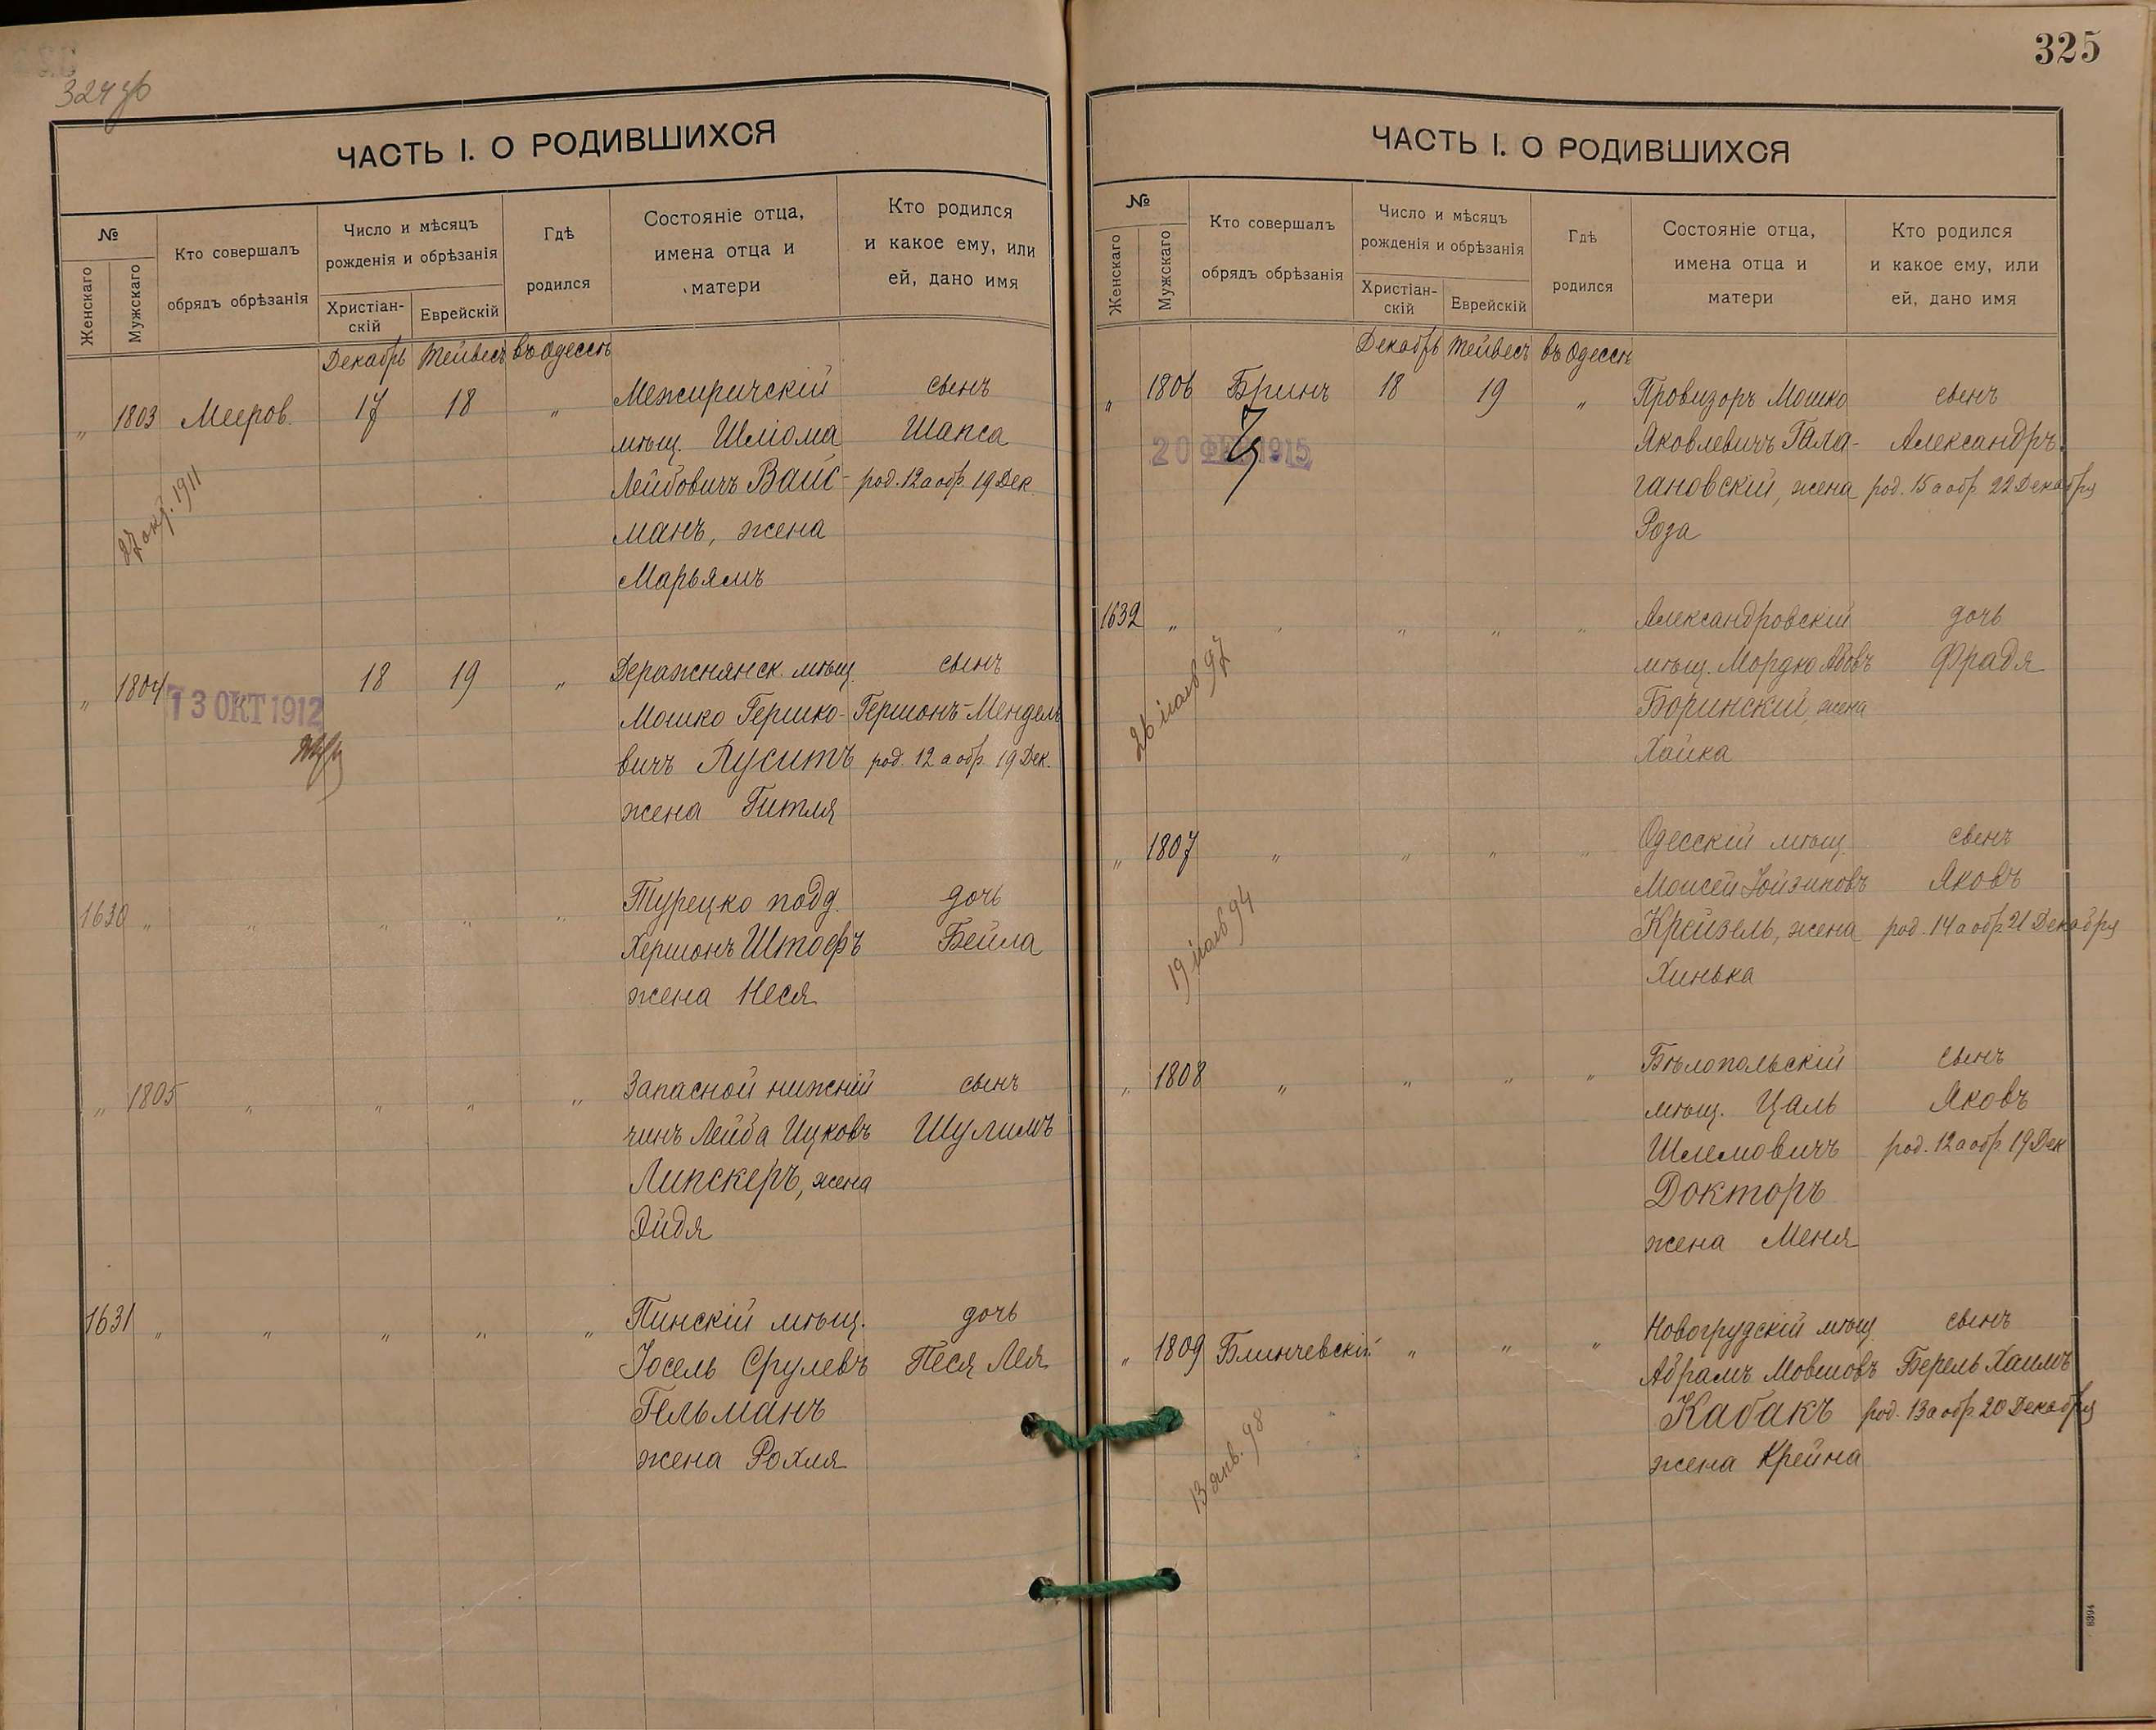 324 об
ЧАСТЬ I. О РОДИВШИХСЯ
№
Женскаго
Мужскаго
Кто совершалъ
обрядъ обрѣзанія
Число и мѣсяцъ
рожденія и обрѣзанія
Христіан-
скій
Еврейскій
Гдѣ
родился
Состояніе отца,
имена отца и
матери
Кто родился
и какое ему, или
ей, дано имя
Декабрь Тейвесъ въ Одессѣ
" 1803 Мееров. 17 18 " Межиричскій сынъ
мѣщ. Шліома Шапса
Лейбовичъ Вайс- род. 12 а обр. 19 Дек.
манъ, жена
Марьямъ
27 окт. 1911
" 1804 18 19 " Деражнянск. мѣщ. сынъ
13 ОКТ 1912
Мошко Гершко- Гершонъ-Мендель
вичъ Луситъ род. 12 а обр. 19 Дек.
жена Гитля
1630 " " " " " Турецко подд. дочь
Хершонъ Штофъ Бейла
жена Неся
" 1805 " " " " Запасной нижній сынъ
чинъ Лейба Ицковъ Шулимъ
Липскеръ, жена
Эйдя
1631 " " " " " Пинскій мѣщ. дочь
Іосель Срулевъ Песя Лея
Гельманъ
жена Рохля
325
ЧАСТЬ I. О РОДИВШИХСЯ
№
Женскаго
Мужскаго
Кто совершалъ
обрядъ обрѣзанія
Число и мѣсяцъ
рожденія и обрѣзанія
Христіан-
скій
Еврейскій
Гдѣ
родился
Состояніе отца,
имена отца и
матери
Кто родился
и какое ему, или
ей, дано имя
Декабрь Тейвесъ въ Одессѣ
" 1806 Бринъ 18 19 " Провизоръ Мошко сынъ
20 ФЕВ 1915
Яковлевичъ Гала- Александръ
гановскій, жена род. 15 а обр. 22 Декабря
Роза
1632 " " " " " Александровскій дочь
мѣщ. Мордко Абовъ Фрадя
Боринскій, жена
Хайка
26 іюля 97
" 1807 " " " " Одесскій мѣщ. сынъ
Моисей Зойзиновъ Яковъ
Крейзель, жена род. 14 а обр. 21 Декабря
Хинька
19 іюля 94
" 1808 " " " " Бѣлопольскій сынъ
мѣщ. Цаль Яковъ
Шлемовичъ род. 12 а обр. 19 Дек
Докторъ
жена Меня
" 1809 Блинчевскій " " " Новогрудскій мѣщ. сынъ
Абрамъ Мовшовъ Берель Хаимъ
Кабакъ род. 13 а обр. 20 Декабря
жена Крейна
13 янв. 98
8394